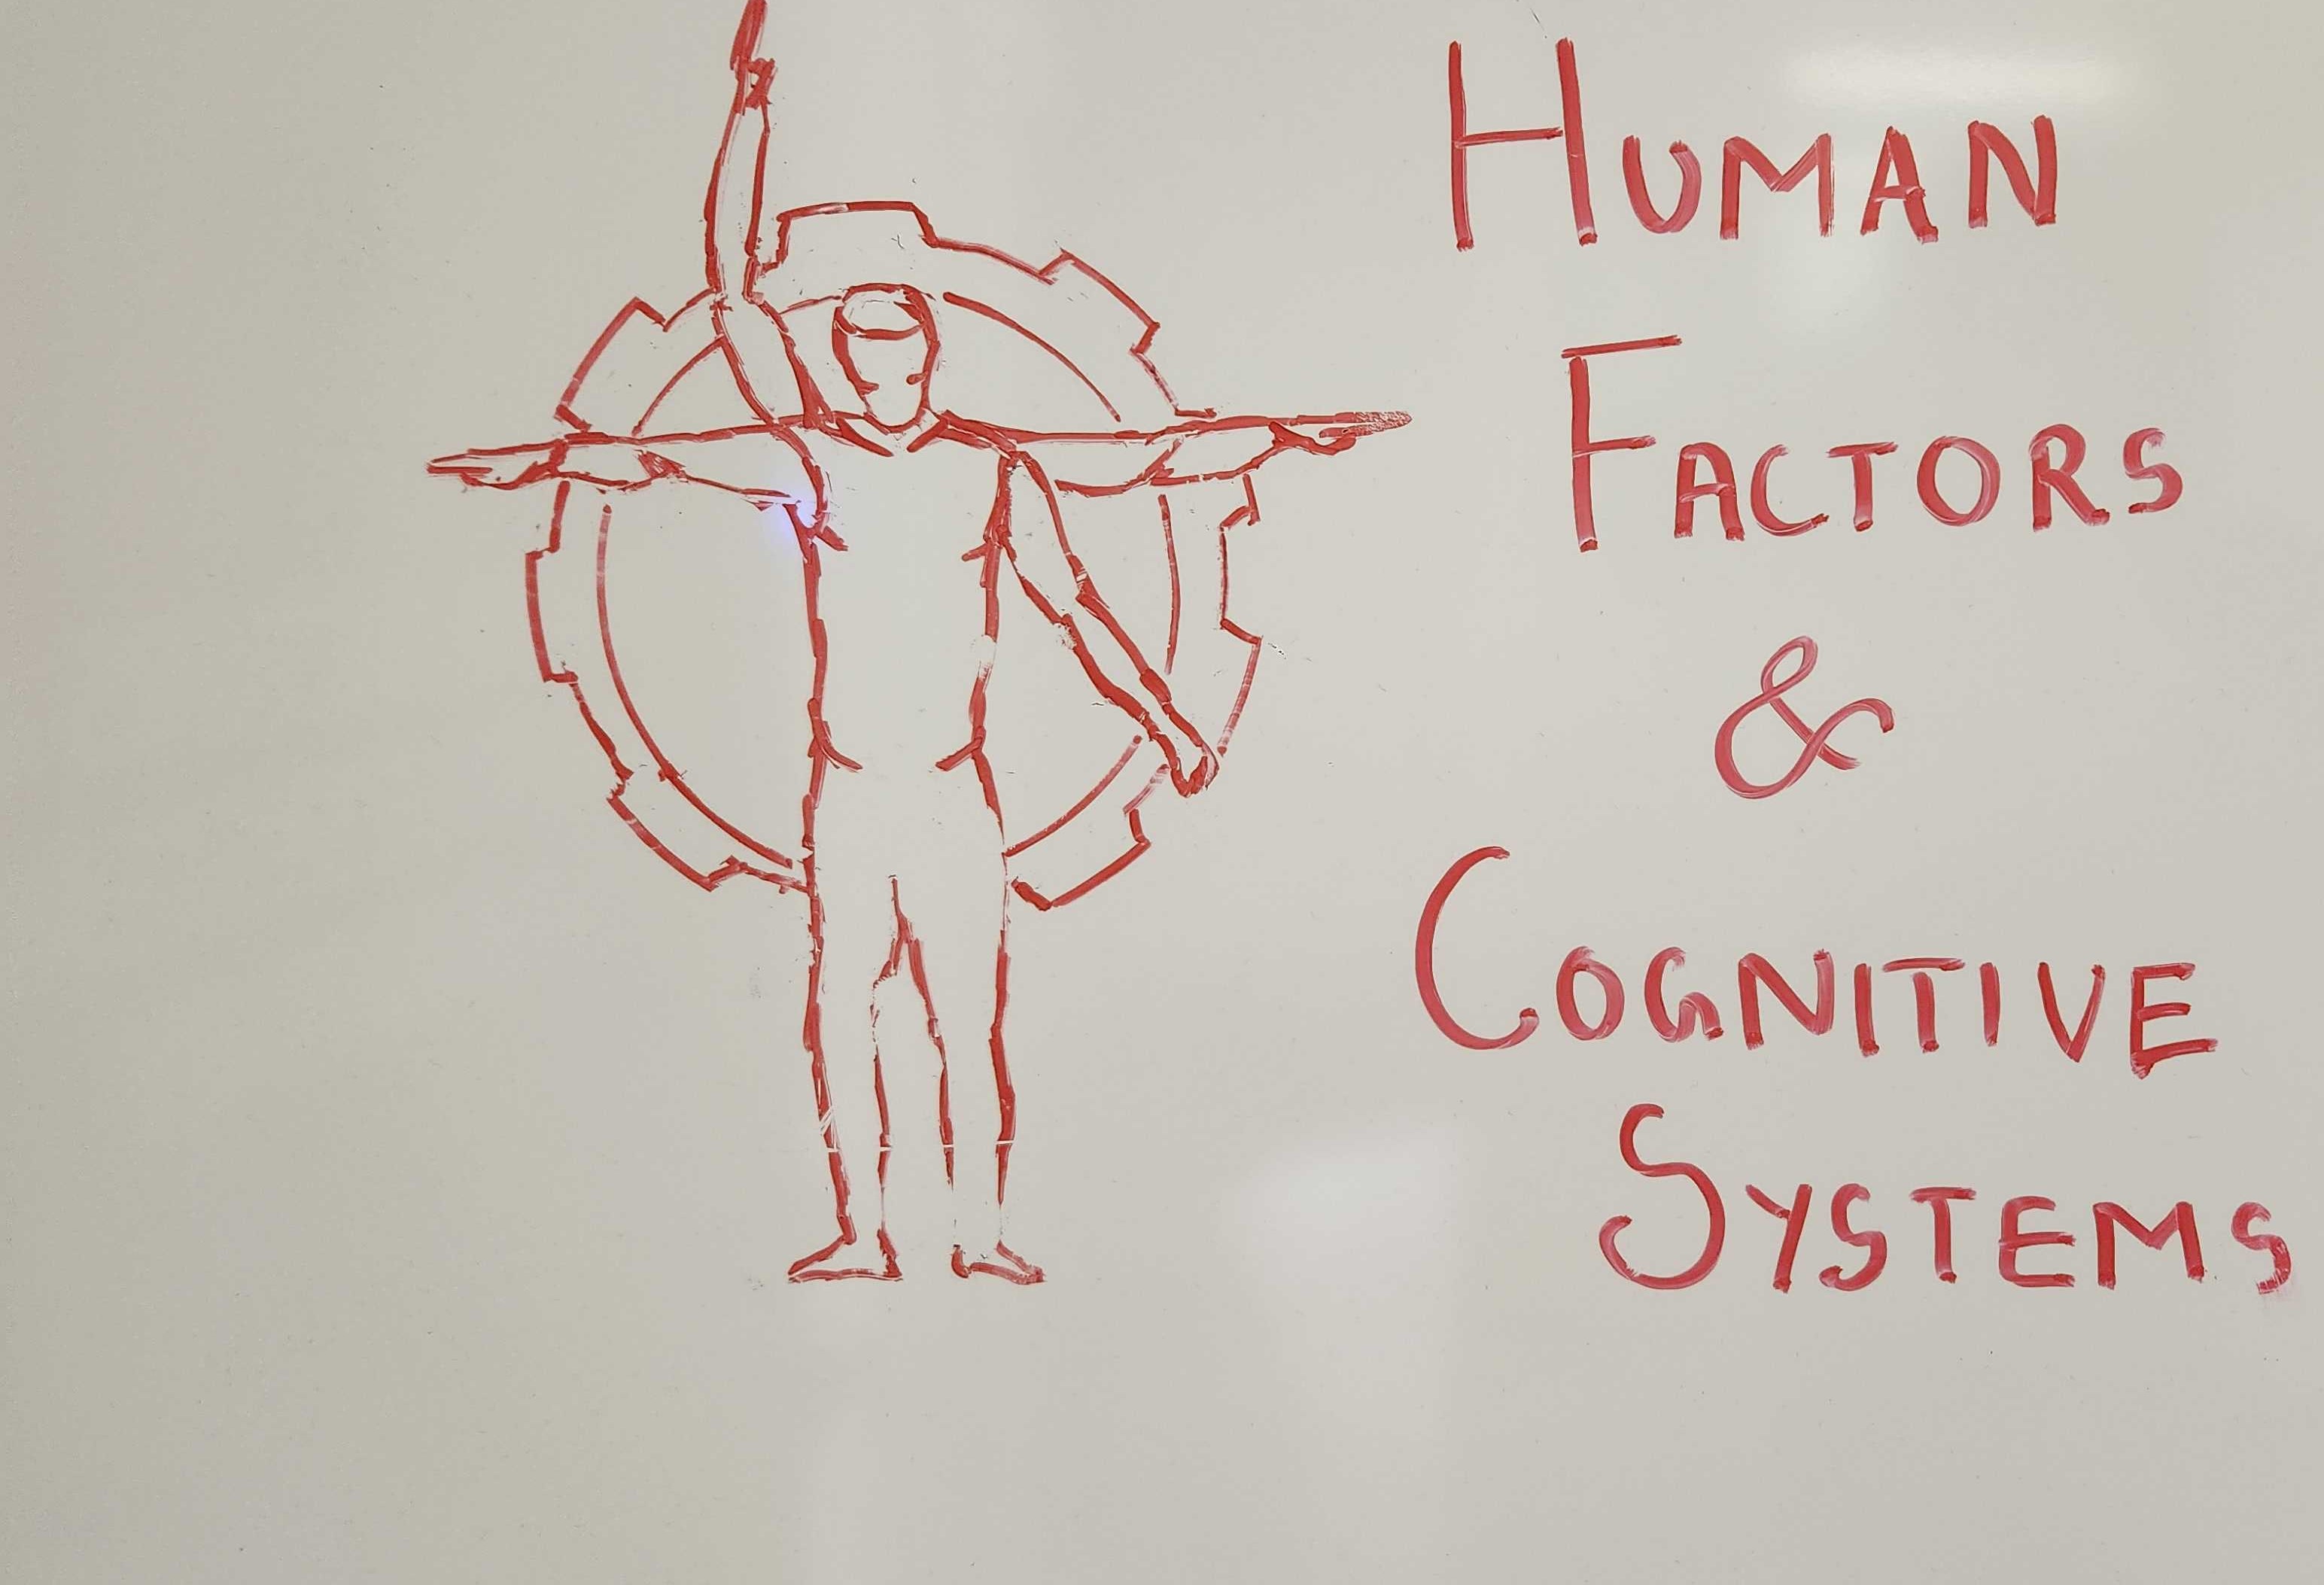 HUMAN
FACTORS
&
COGNITIVE
SYSTEMS